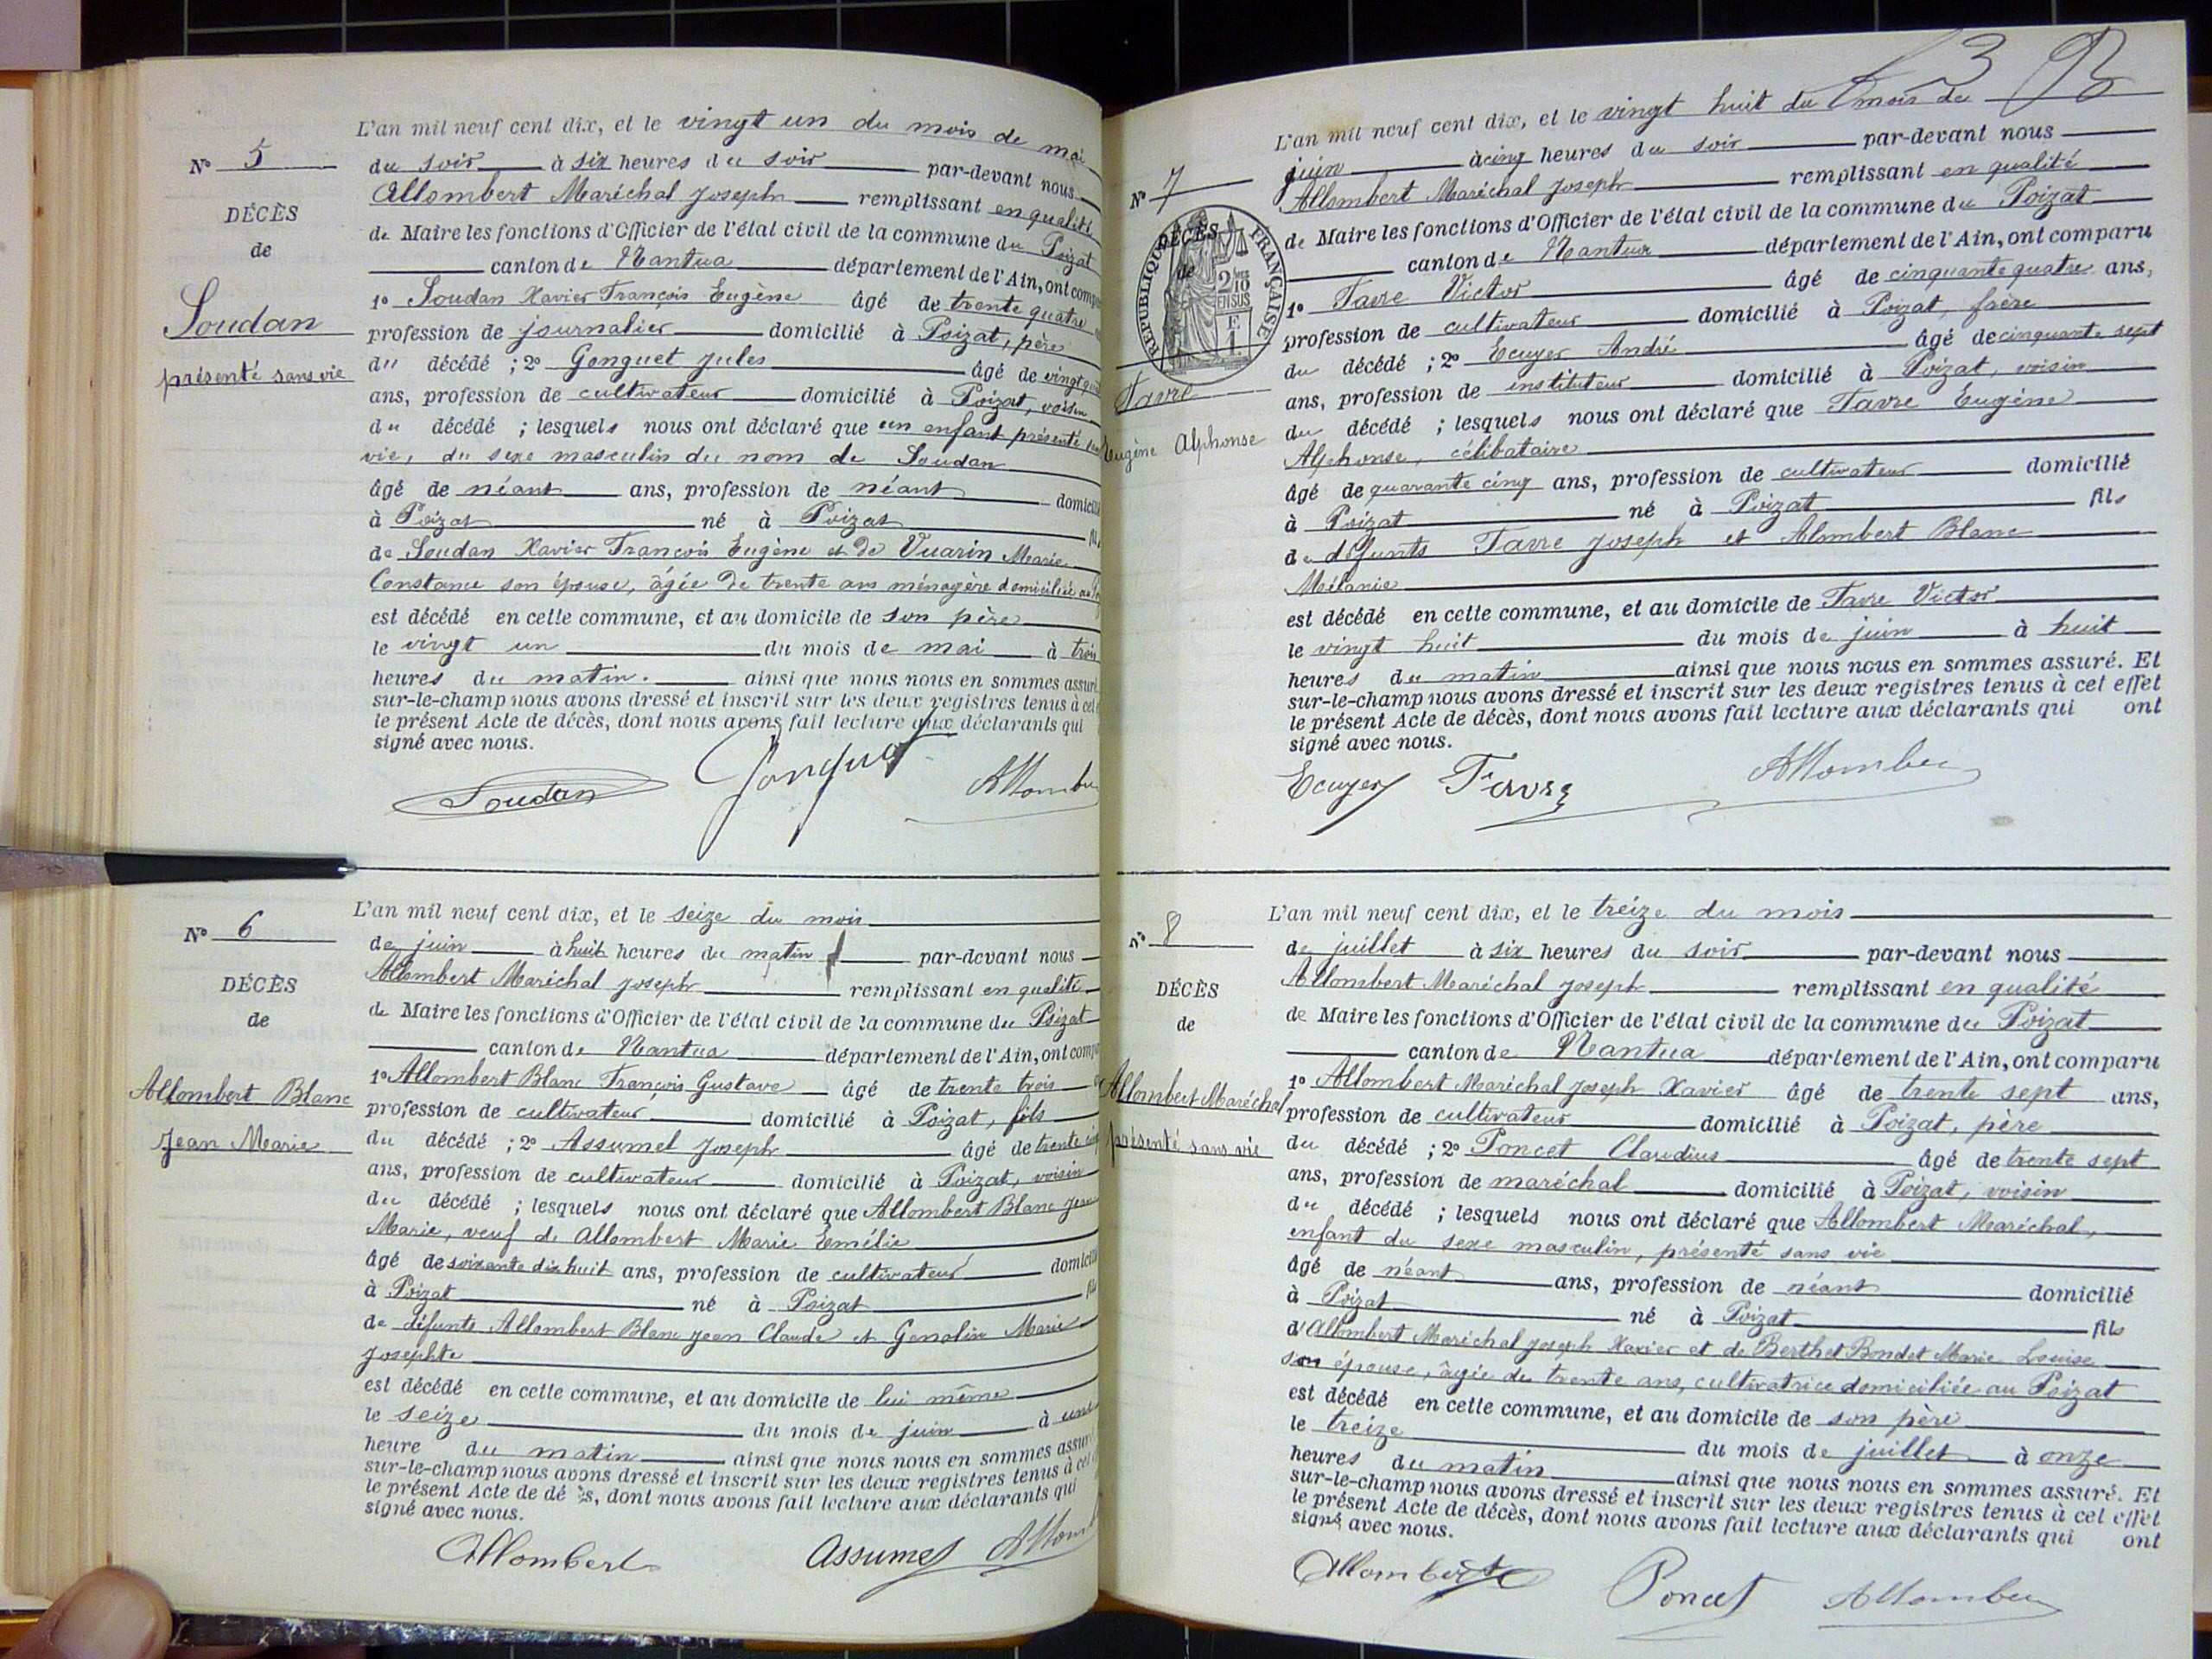 L'an mil neuf cent dix, et le vingt un du mois de mai
N° 5
du soir à six heures du soir par-devant nous
Allombert Maréchal Joseph remplissant en qualité
DÉCÈS
de Maire les fonctions d'Officier de l'état civil de la commune du Poizat
de
canton de Nantua département de l'Ain, ont comp
1° Soudan Xavier François Eugène âgé de trente quatre
Soudan
profession de journalier domicilié à Poizat, père
présenté sans vie
du décédé ; 2° Gonguet Jules âgé de
ans, profession de cultivateur domicilié à Poizat, voisin
du décédé ; lesquels nous ont déclaré que un enfant présenté
vie, du sexe masculin du nom de Soudan
âgé de néant ans, profession de néant domicilié
à Poizat né à Poizat fils
de Soudan Xavier François Eugène et de Vuarin Marie
Constance son épouse, âgée de trente ans ménagère domiciliée
est décédé en cette commune, et au domicile de son père
le vingt un du mois de mai à trois
heures du matin. ainsi que nous nous en sommes assuré
sur-le-champ nous avons dressé et inscrit sur les deux registres tenus à cet
le présent Acte de décès, dont nous avons fait lecture aux déclarants qui
signé avec nous.
Soudan Allombe
N° 6
L'an mil neuf cent dix, et le seize du mois
de juin à huit heures du matin par-devant nous
Allombert Maréchal Joseph remplissant en qualité
DÉCÈS
de Maire les fonctions d'Officier de l'état civil de la commune du Poizat
de
canton de Nantua département de l'Ain, ont comp
1° Allombert Blanc François Gustave âgé de trente trois
Allombert Blanc
profession de cultivateur domicilié à Poizat, fils
Jean Marie
du décédé ; 2° Assumel Joseph âgé de trente
ans, profession de cultivateur domicilié à Poizat, voisin
du décédé ; lesquels nous ont déclaré que Allombert Blanc Jean
Marie, veuf de Allombert Marie Emélie
âgé de soixante dix huit ans, profession de cultivateur domicilié
à Poizat né à Poizat fils
de défunts Allombert Blanc Jean Claude et Genolin Marie
Josephte
est décédé en cette commune, et au domicile de lui même
le seize du mois de juin à une
heure du matin ainsi que nous nous en sommes assuré
sur-le-champ nous avons dressé et inscrit sur les deux registres tenus à cet
le présent Acte de décès, dont nous avons fait lecture aux déclarants qui
signé avec nous.
Allombert Assumel Allom
93
L'an mil neuf cent dix, et le vingt huit du mois de
N° 7
juin à cinq heures du soir par-devant nous
Allombert Maréchal Joseph remplissant en qualité
DÉCÈS
de Maire les fonctions d'Officier de l'état civil de la commune du Poizat
de
RÉPUBLIQUE FRANÇAISE
2/10 EN SUS
canton de Nantua département de l'Ain, ont comparu
1° Favre Victor âgé de cinquante quatre ans,
profession de cultivateur domicilié à Poizat, frère
du décédé ; 2° Ecuyer André âgé de cinquante sept
Favre
ans, profession de instituteur domicilié à Poizat, voisin
Eugène Alphonse
du décédé ; lesquels nous ont déclaré que Favre Eugène
Alphonse, célibataire
âgé de quarante cinq ans, profession de cultivateur domicilié
à Poizat né à Poizat fils
de défunts Favre Joseph et Alombert Blanc
Mélanie
est décédé en cette commune, et au domicile de Favre Victor
le vingt huit du mois de juin à huit
heures du matin ainsi que nous nous en sommes assuré. Et
sur-le-champ nous avons dressé et inscrit sur les deux registres tenus à cet effet
le présent Acte de décès, dont nous avons fait lecture aux déclarants qui ont
signé avec nous.
Ecuyer Favre Allombe
N° 8
L'an mil neuf cent dix, et le treize du mois
de juillet à six heures du soir par-devant nous
Allombert Maréchal Joseph remplissant en qualité
DÉCÈS
de Maire les fonctions d'Officier de l'état civil de la commune du Poizat
de
canton de Nantua département de l'Ain, ont comparu
1° Allombert Maréchal Joseph Xavier âgé de trente sept ans,
Allombert Maréchal
profession de cultivateur domicilié à Poizat, père
présenté sans vie
du décédé ; 2° Poncet Claudius âgé de trente sept
ans, profession de maréchal domicilié à Poizat, voisin
du décédé ; lesquels nous ont déclaré que Allombert Maréchal,
enfant du sexe masculin, présenté sans vie
âgé de néant ans, profession de néant domicilié
à Poizat né à Poizat fils
d'Allombert Maréchal Joseph Xavier et de Berthet Bondet Marie Louise
son épouse, âgée de trente ans, cultivatrice domiciliée au Poizat
est décédé en cette commune, et au domicile de son père
le treize du mois de juillet à onze
heures du matin ainsi que nous nous en sommes assuré. Et
sur-le-champ nous avons dressé et inscrit sur les deux registres tenus à cet effet
le présent Acte de décès, dont nous avons fait lecture aux déclarants qui ont
signé avec nous.
Allombert Poncet Allombe